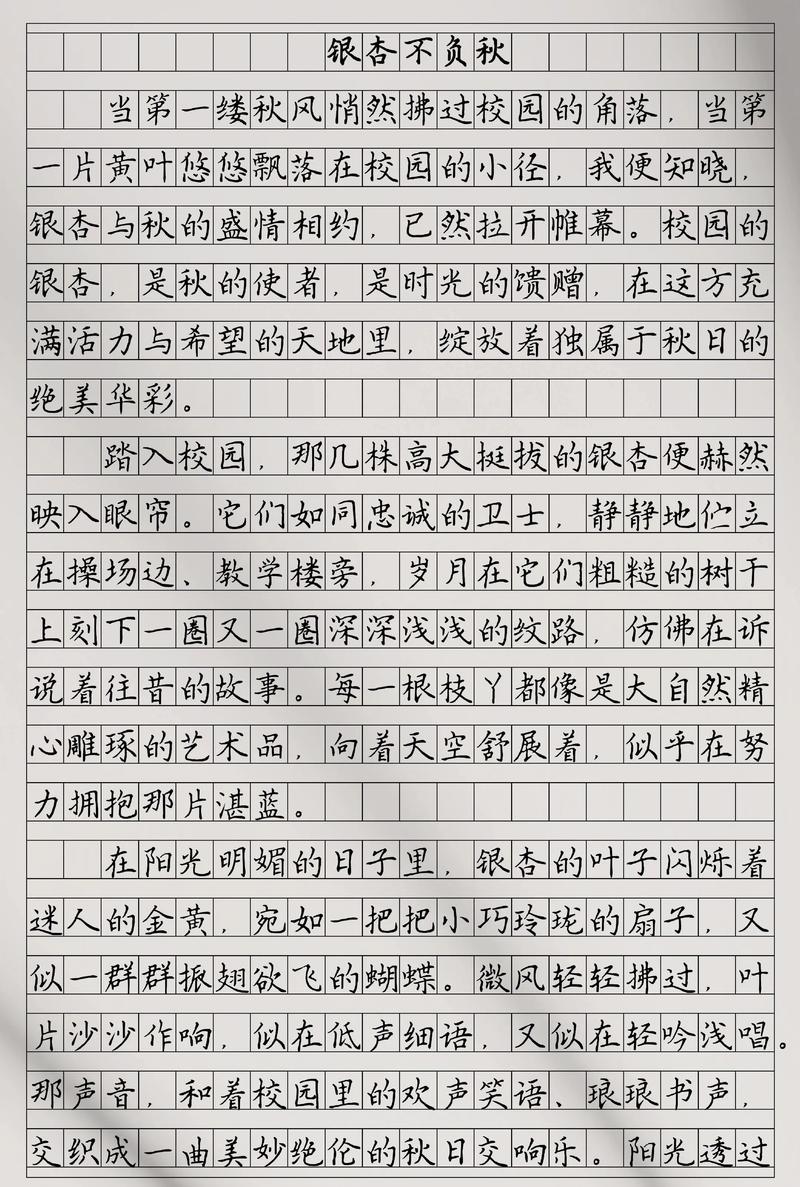 银杏不负秋
当第一缕秋风悄然拂过校园的角落，当第
一片黄叶悠悠飘落在校园的小径，我便知晓，
银杏与秋的盛情相约，已然拉开帷幕。校园的
银杏，是秋的使者，是时光的馈赠，在这方充
满活力与希望的天地里，绽放着独属于秋日的
绝美华彩。
踏入校园，那几株高大挺拔的银杏便赫然
映入眼帘。它们如同忠诚的卫士，静静地伫立
在操场边、教学楼旁，岁月在它们粗糙的树干
上刻下一圈又一圈深深浅浅的纹路，仿佛在诉
说着往昔的故事。每一根枝丫都像是大自然精
心雕琢的艺术品，向着天空舒展着，似乎在努
力拥抱那片湛蓝。
在阳光明媚的日子里，银杏的叶子闪烁着
迷人的金黄，宛如一把把小巧玲珑的扇子，又
似一群群振翅欲飞的蝴蝶。微风轻轻拂过，叶
片沙沙作响，似在低声细语，又似在轻吟浅唱。
那声音，和着校园里的欢声笑语、琅琅书声，
交织成一曲美妙绝伦的秋日交响乐。阳光透过